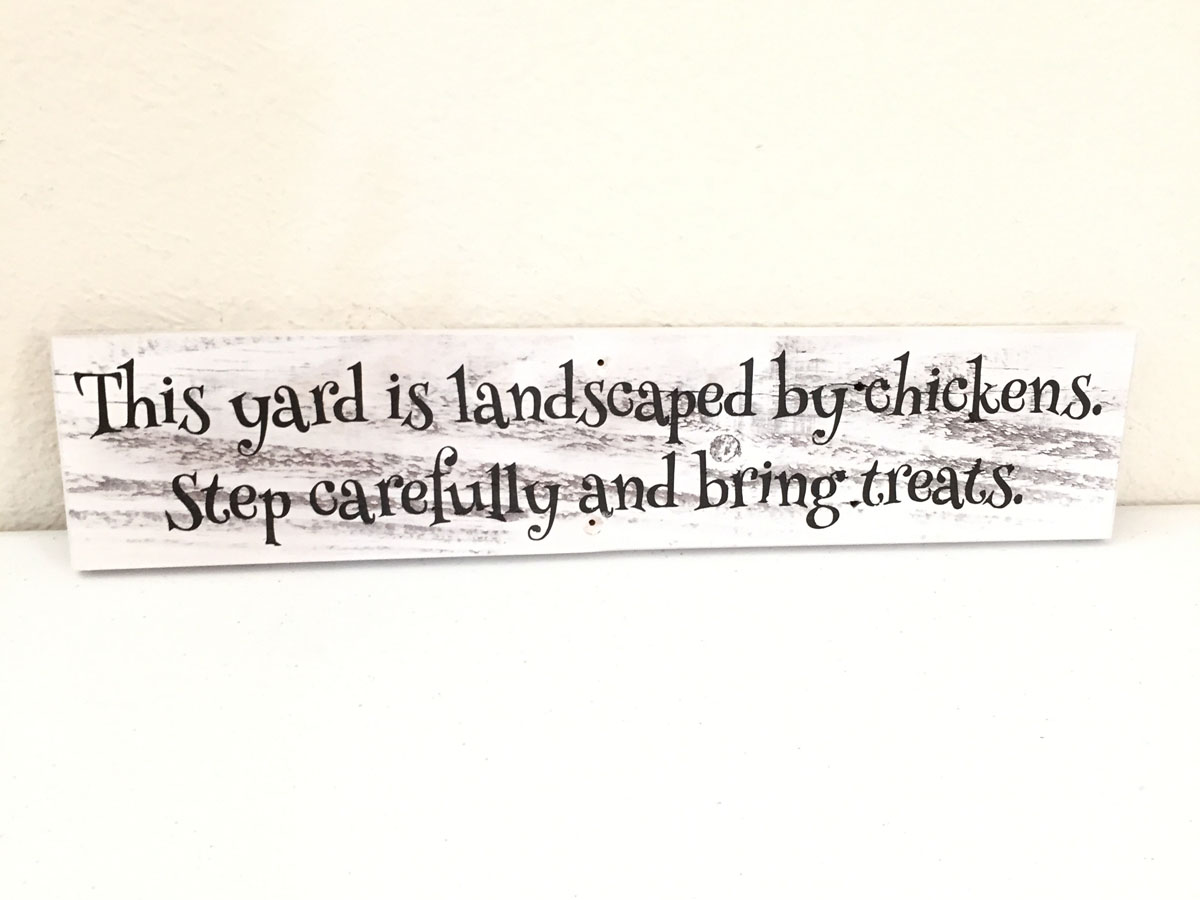 This yard is landscaped by chickens.
Step carefully and bring treats.